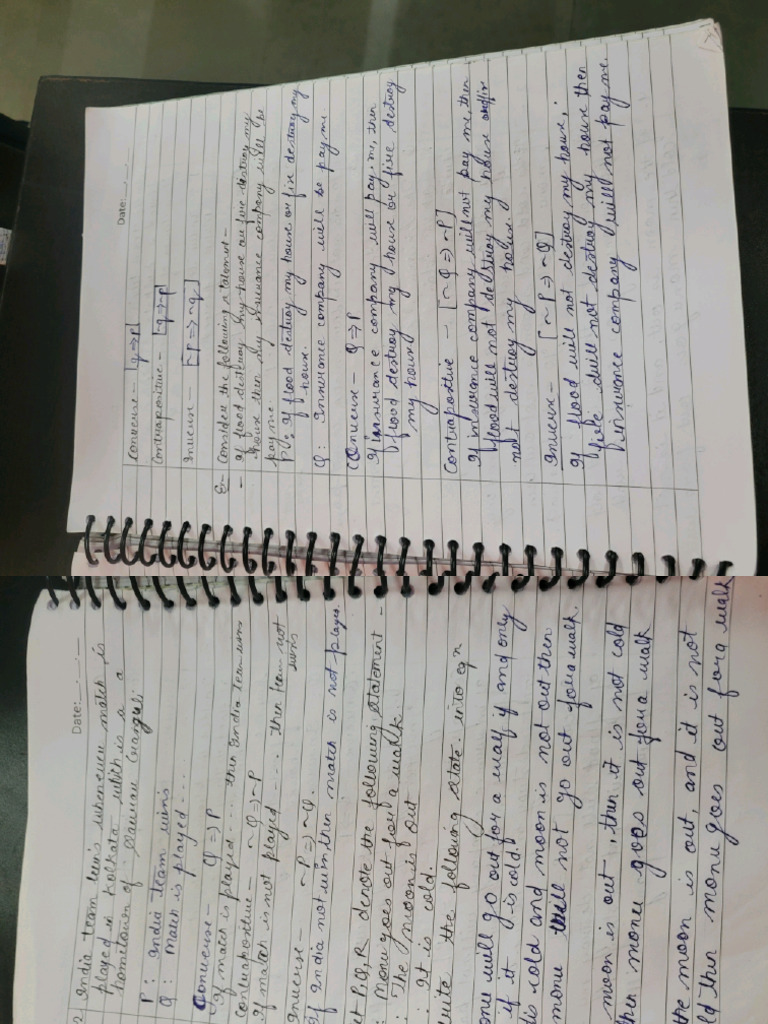 Date:
Converse - [q→p]
Contrapositive - [~q→~p]
Inverse - [~p => ~q]
Ex- Consider the following statement -
- If flood destroy my house or fire destroy my
house then my insurance company will be
pay me.
P: If flood destroy my house or fire destroy my
house.
Q: Insurance company will be pay me.
Converse - Q => P
If insurance company will pay me, then
flood destroy my house or fire destroy
my house
Contrapositive - [~Q => ~P]
If insurance company will not pay me, then
flood will not destroy my house
not destroy my house.
Inverse - [~P => ~Q]
If flood will not destroy my house,
fire will not destroy my house then
insurance company will not pay me.
Date:
2 India team wins whenever match is
played in Kolkata which is a
hometown of
P: India team wins
Q: Match is played ....
Converse - Q => P
If match is played .... then India team wins
Contrapositive - ~Q => ~P
If match is not played .... then team not
wins
Inverse - ~P => ~Q.
If India not win then match is not played.
et P, Q, R denote the following statement -
: Monu goes out for a walk.
: The moon is out
: It is cold.
write the following state. into eqn
onu will go out for a walk if and only
if it is cold.
t is cold and moon is not out then
monu will not go out for a walk.
moon is out, then it is not cold
then monu goes out for a walk
the moon is out, and it is not
ld then monu goes out for a walk